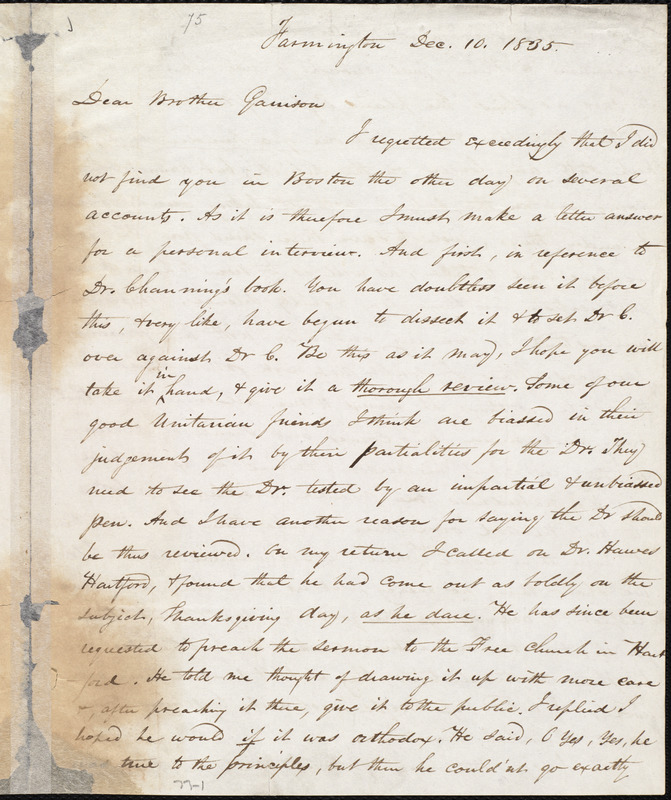 75
Farmington Dec. 10. 1835.
Dear Brother Garrison
I regretted exceedingly that I did
not find you in Boston the other day, on several
accounts. As it is therefore I must make a letter answer
for a personal interview. And first, in reference to
Dr. Channing's book. You have doubtless seen it before
this, & very like, have begun to dissect it & to set Dr C.
over against Dr C. Be this as it may, I hope you will
take it in hand, & give it a thorough review. Some of our
good Unitarian friends I think are biassed in their
judgement of it by their partialities for the Dr. They
need to see the Dr. tested by an impartial & unbiassed
pen. And I have another reason for saying the Dr should
be thus reviewed. On my return I called on Dr. Hawes
Hartford, & found that he had come out as boldly on the
subject, Thanksgiving day, as he dare. He has since been
requested to preach the sermon to the Free Church in Hart
ford. He told me thought of drawing it up with more care
&, after preaching it there, give it to the public. I replied I
hoped he would if it was orthodox. He said, O Yes, Yes, he
true to the principles, but then he could'nt go exactly